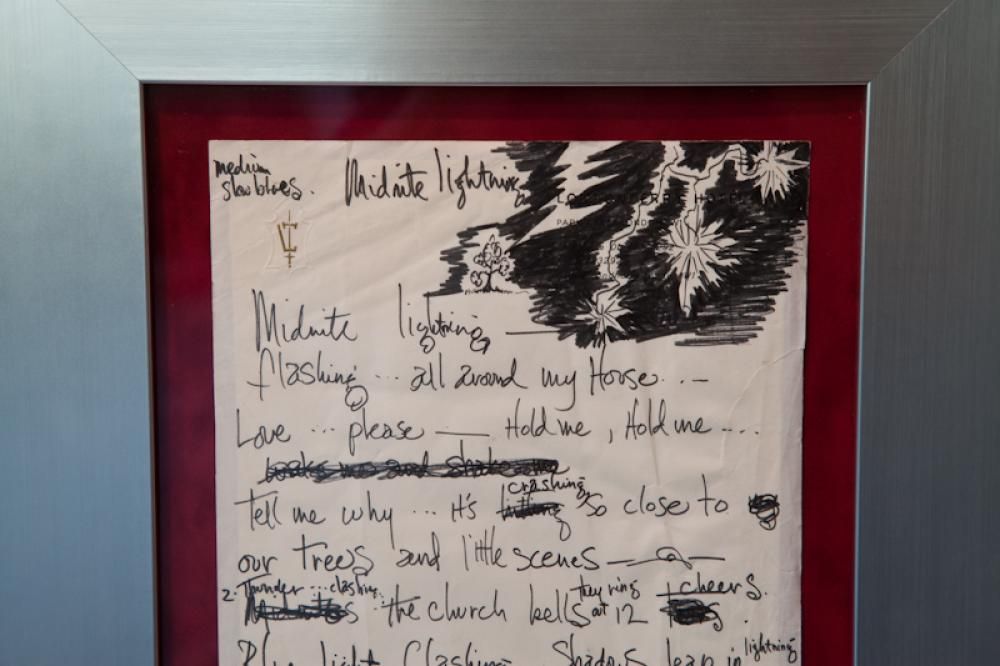 medium
slow blues. Midnite lightning
Midnite lightning —
flashing ... all around my House ...—
Love ... please — Hold me, Hold me ....
crashing
Tell me why ... it's so close to
our trees and little scenes —
2. Thunder ... clashing.. they ring cheers.
the church bells at 12
lightning
Blue light Clashing Shadows leap in